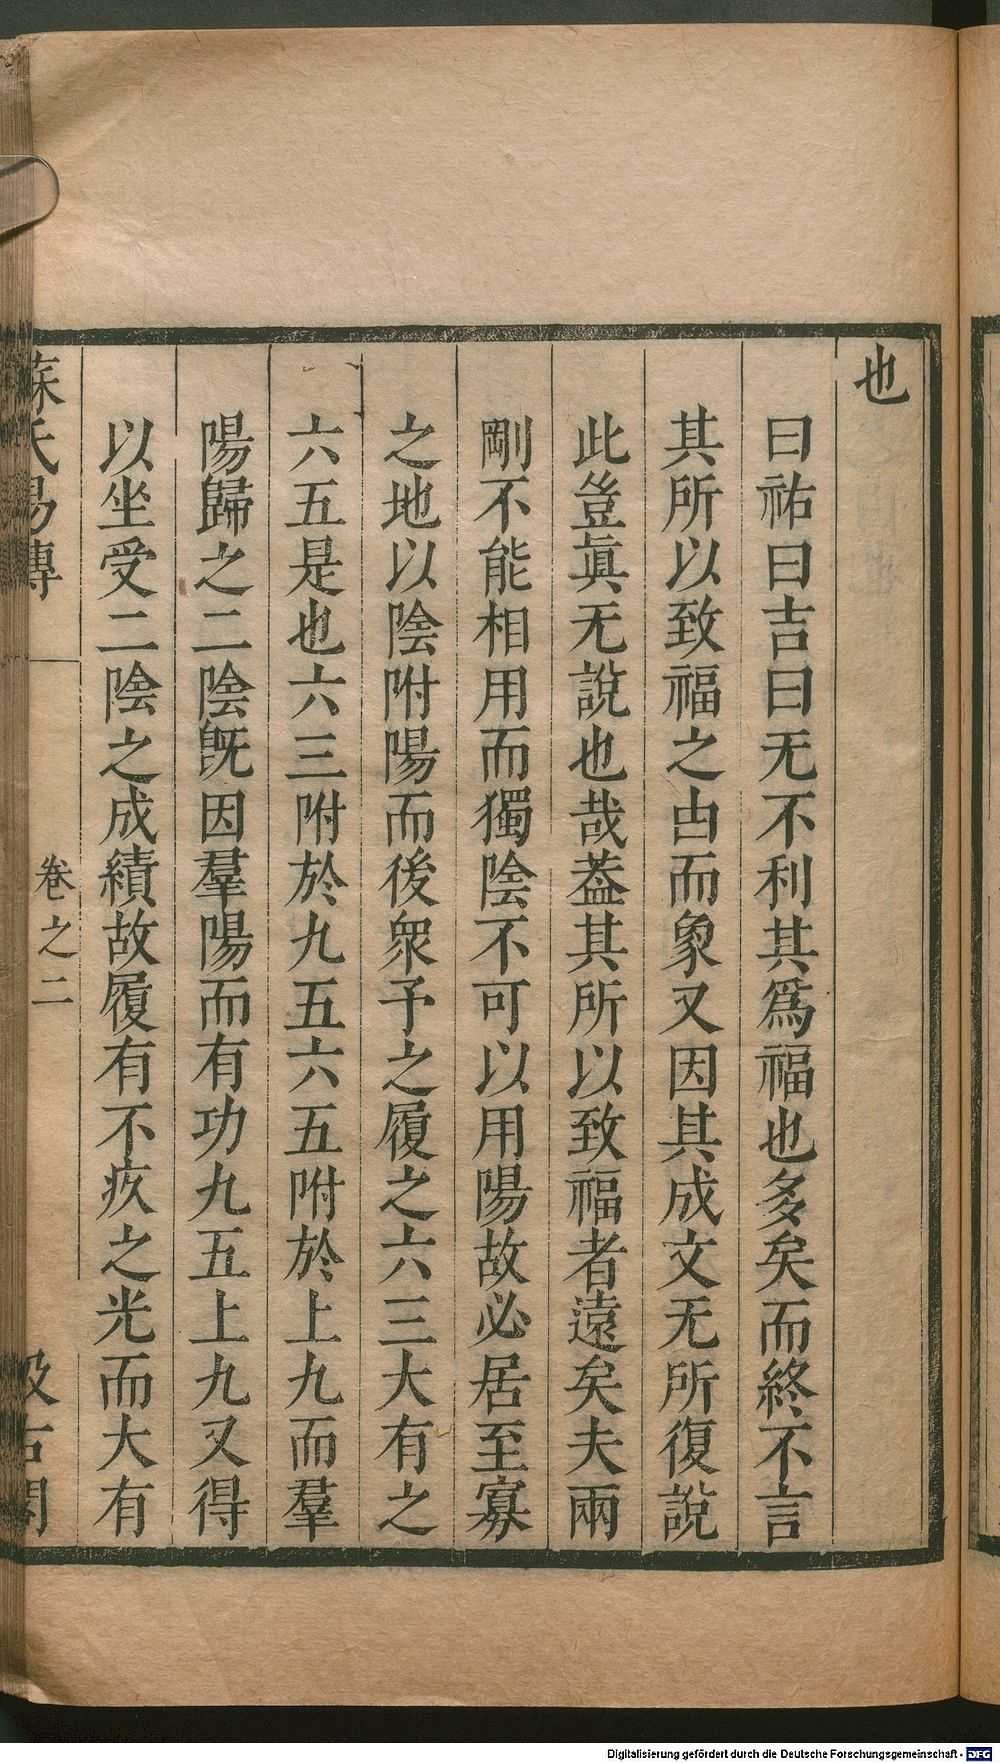 也
曰祐曰吉曰无不利其爲福也多矣而終不言
其所以致福之由而象又因其成文无所復說
此豈眞无說也哉葢其所以致福者遠矣夫兩
剛不能相用而獨陰不可以用陽故必居至寡
之地以陰附陽而後衆予之履之六三大有之
六五是也六三附於九五六五附於上九而羣
陽歸之二陰旣因羣陽而有功九五上九又得
以坐受二陰之成績故履有不疚之光而大有
蘇氏易傳
卷之二
汲古閣
Digitalisierung gefördert durch die Deutsche Forschungsgemeinschaft - DFG